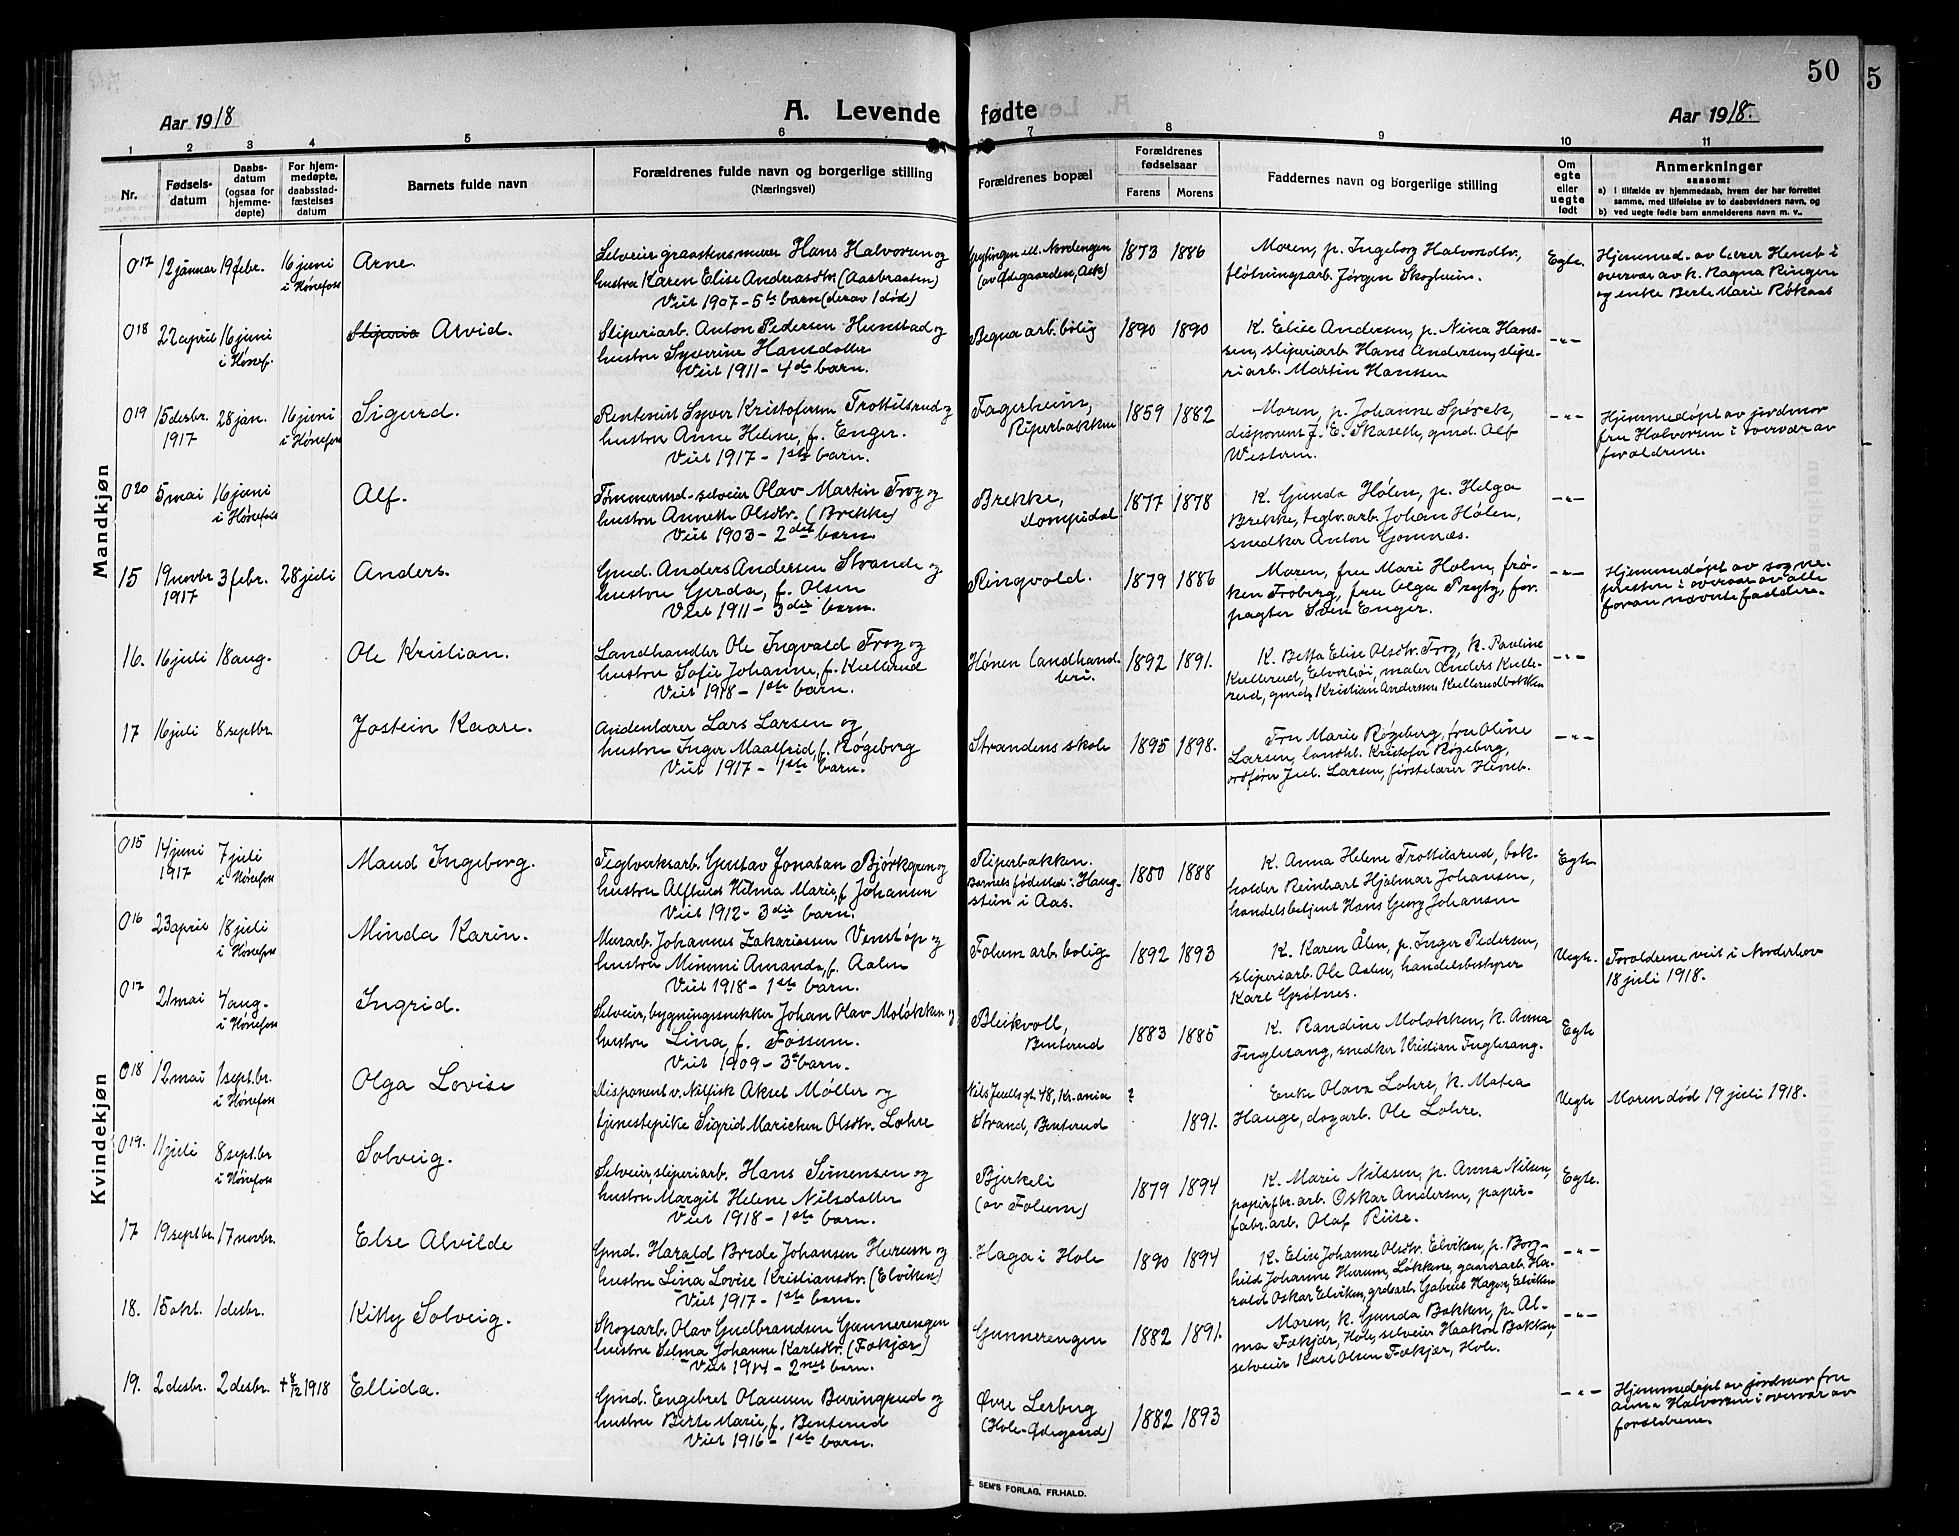 50
5
Aar 1918
A. Levende fødte
Aar 1918.
1 2 3 4 5 6 7 8 9 10 11
Nr.
Fødsels-
datum
Daabs-
datum
(ogsaa for
hjemme-
døpte)
For hjem-
medøpte,
daabsstad-
fæstelses
datum
Barnets fulde navn
Forældrenes fulde navn og borgerlige stilling
(Næringsvei)
Forældrenes bopæl
Forældrenes
fødselsaar
Farens Morens
Faddernes navn og borgerlige stilling
Om
egte
eller
uegte
født
Anmerkninger
saasom:
a) i tilfælde av hjemmedaab, hvem der har forrettet
samme, med tilføielse av to daabsvidners navn, og
b) ved uegte fødte barn anmelderens navn m. v..
Mandkjøn
017 12 januar 19 febr. 16 juni i Hønefoss Arne.
Selveier graastensmurer Hans Halvorsen og
hustru Karen Elise Andersdtr. (Aasbraaten)
Viet 1907 - 5te barn (derav 1 død)
Nordengen
1873 1886
Moren, p. Ingeborg Halvorsdtr.,
fløtningsarb. Jørgen Skogheim.
Egte.
Hjemmed. av lærer Hemb i
overvær av k. Ragna Ringen
og enke Berte Marie Røkaas
018 22 april 16 juni i Hønef. Arvid.
Sliperiarb. Anton Pedersen Hunstad og
hustru Syverine Hansdatter
Viet 1911 - 4de barn.
Begna arb.bolig 1890 1890
K. Elise Andersen, p. Nina Hans-
sen, sliperiarb. Hans Andersen, slipe-
riarb. Martin Hanssen
-"-
019 15 desbr. 1917 28 jan. 16 juni i Hønefoss Sigurd.
Rentenist Syver Kristofersen Trottilsrud og
hustru Anne Helene, f. Enger.
Viet 1917 - 1ste barn.
Fagerheim,
Riperbakken
1859 1882
Moren, p. Johanne Spørck,
disponent J. E. Skaseth, gmd. Alf
Western.
-"-
Hjemmedøpt av jordmor
fru Halvorsen i overvær av
forældrene.
020 5 mai 16 juni i Hønefoss Alf.
Tømmermd.-selveier Olav Martin Trøg og
hustru Annette Olsdtr. (Brekke)
Viet 1903 - 2det barn.
Brekke,
Sompsdal
1877 1878
K. Gunda Hølen, p. Helga
Brekke, teglv.arb. Johan Hølen,
snedker Anton Gomnæs.
-"-
15 19 novbr 1917 3 febr. 28 juli Anders.
Gmd. Anders Andersen Strande og
hustru Gerda, f. Olsen
Viet 1911 - 3die barn.
Ringvold. 1879 1886
Moren, fru Mari Holm, frø-
ken Troberg, fru Olga Frøgby, for-
pagter Sven Enger.
-"-
Hjemmedøpt av sogne-
presten i overvær av alle
foran nævnte faddere.
16. 16 juli 18 aug. Ole Kristian.
Landhandler Ole Ingvald Trøg og
hustru Sofie Johanne, f. Kullerud
Viet 1918 - 1ste barn.
Hønen landhand-
leri.
1892 1891.
K. Betta Elise Olsdtr. Trøg, k. Pauline
Kullerud, Elverhøi, maler Anders Kulle-
rud, gmd. Kristian Andersen Kullerudbakken
-"-
17 16 juli 8 septbr. Jostein Kaare.
Andenlærer Lars Larsen og
hustru Inger Maalfrid, f. Røgeberg
Viet 1917 - 1ste barn.
Strandens skole 1895 1898.
Fru Marie Røgeberg, fru Oline
Larsen, landhl. Kristofer Røgeberg,
ordfører Jul. Larsen, førstelærer Hemb.
-"-
Kvindekjøn
015 14 juni 1917 7 juli i Hønefoss Maud Ingeborg.
Teglverksarb. Gustav Jonatan Bjørkgren og
hustru Alfhild Hilma Marie, f. Johansen
Viet 1912 - 3die barn.
Riperbakken.
Barnets fødested: Haug-
stein i Aas.
1880 1888
K. Anna Helene Trottilsrud, bok-
holder Reinhart Hjalmar Johansen,
handelsbetjent Hans Georg Johansen
Egte
016 23 april 18 juli i Hønefoss Minda Karin.
Murarb. Johannes Zakariassen Venstøp og
hustru Mimmi Amanda, f. Aalen
Viet 1918 - 1ste barn.
Folum arb.bolig 1892 1893
K. Karen Ålen, p. Inger Pedersen,
sliperiarb. Ole Aalen, handelsbestyrer
Karl Grøtnes.
Uegte.
Forældrene viet i Norderhov
18 juli 1918.
017 21 mai 4 aug. i Hønefoss Ingrid.
Selveier, bygningssnekker Johan Olav Moløkken og
hustru Lina, f. Fossum.
Viet 1909 - 3die barn.
Bleikvoll,
Benterud
1883 1885
K. Randine Moløkken, k. Anna
Fuglesang, snedker Kristian Fuglesang.
Egte
018 12 mai 1 septbr. i Hønefoss Olga Lovise
Disponent v. Nilfisk Aksel Møller og
tjenestepike Sigrid Marichen Olsdtr. Lohre
Nils Juels gt. 48, Kr.ania
Strand, Benterud
? 1891.
Enke Olava Lohre, k. Matea
Hauge, dagarb. Ole Lohre.
Uegte
Moren død 19 juli 1918.
019. 11 juli 8 septbr i Hønefoss Solveig.
Selveier, sliperiarb. Hans Simensen og
hustru Margit Helene Nilsdatter
Viet 1918 - 1ste barn.
Bjerkeli
(av Folum)
1879 1894
K. Marie Nilssen, p. Anna Nilsen,
papirfbr.arb. Oskar Andersen, papir-
fabr.arb. Olaf Riise.
Egte.
17 19 septbr. 17 novbr. Else Alvilde
Gmd. Harald Brede Johansen Hurum og
hustru Lina Lovise Kristiansdtr. (Elviken)
Viet 1917 - 1ste barn.
Haga i Hole 1890 1894
K. Elise Johanne Olsdtr. Elviken, p. Borg-
hild Johanne Hurum, Løkkene, gaardsarb. Ha-
rald Oskar Elviken, grdsarb. Gabriel Hagen, Elviken
-"-
18. 15 okt. 1 desbr. Kitty Solveig.
Skogsarb. Olav Gudbrandsen Gunnerengen
hustru Selma Johanne Karlsdtr. (Fækjær)
Viet 1914 - 2net barn.
Gunnerengen 1882 1891.
Moren, k. Gunda Bakken, p. Al-
ma Fækjær, Hole, selveier Haakon Bakken,
selveier Karl Olsen Fækjær, Hole.
-"-
19. 2 desbr. 2 desbr. + 8/12 1918 Ellida.
Gmd. Engebret Olaussen Buringrud og
hustru Berte Marie, f. Benterud
Viet 1916 - 1ste barn.
Øvre Lerberg
(Hole-Ødegaard)
1882 1893
-"-
Hjemmedøpt av jordmor fru
Anna Halvorsen i overvær av
forældrene.
E. SEM'S FORLAG, FR.HALD.